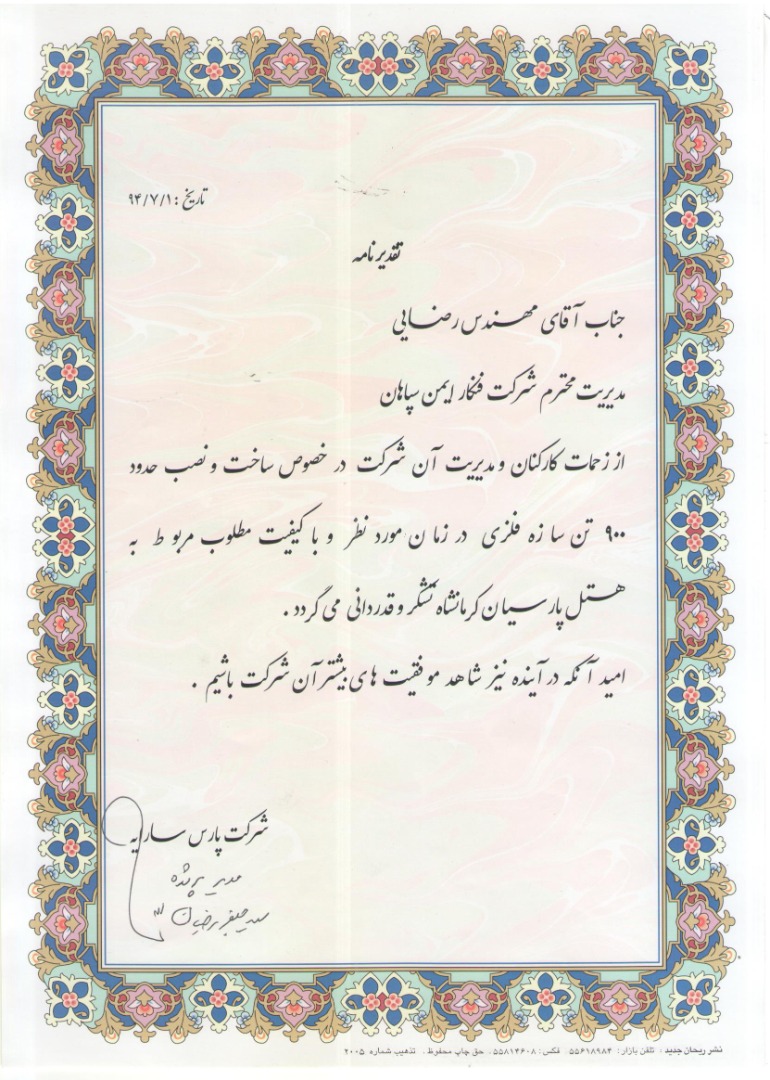 تاریخ : ۹۴/۷/۱
تقدیرنامه
جناب آقای مهندس رضایی
مدیریت محترم شرکت فنکار ایمن سپاهان
از زحمات کارکنان و مدیریت آن شرکت در خصوص ساخت و نصب حدود
۹۰۰ تن سازه فلزی در زمان مورد نظر و با کیفیت مطلوب مربوط به
هتل پارسیان کرمانشاه تشکر و قدردانی می گردد .
امید آنکه در آینده نیز شاهد موفقیت های بیشتر آن شرکت باشیم .
شرکت پارس سازه
مدیر پروژه
سید جعفر
نشر ریحان جدید ، تلفن بازار: ۵۵۶۱۸۹۸۴ ، فکس : ۵۵۸۱۴۶۰۸ ، حق چاپ محفوظ . تذهیب شماره ۲۰۰۵